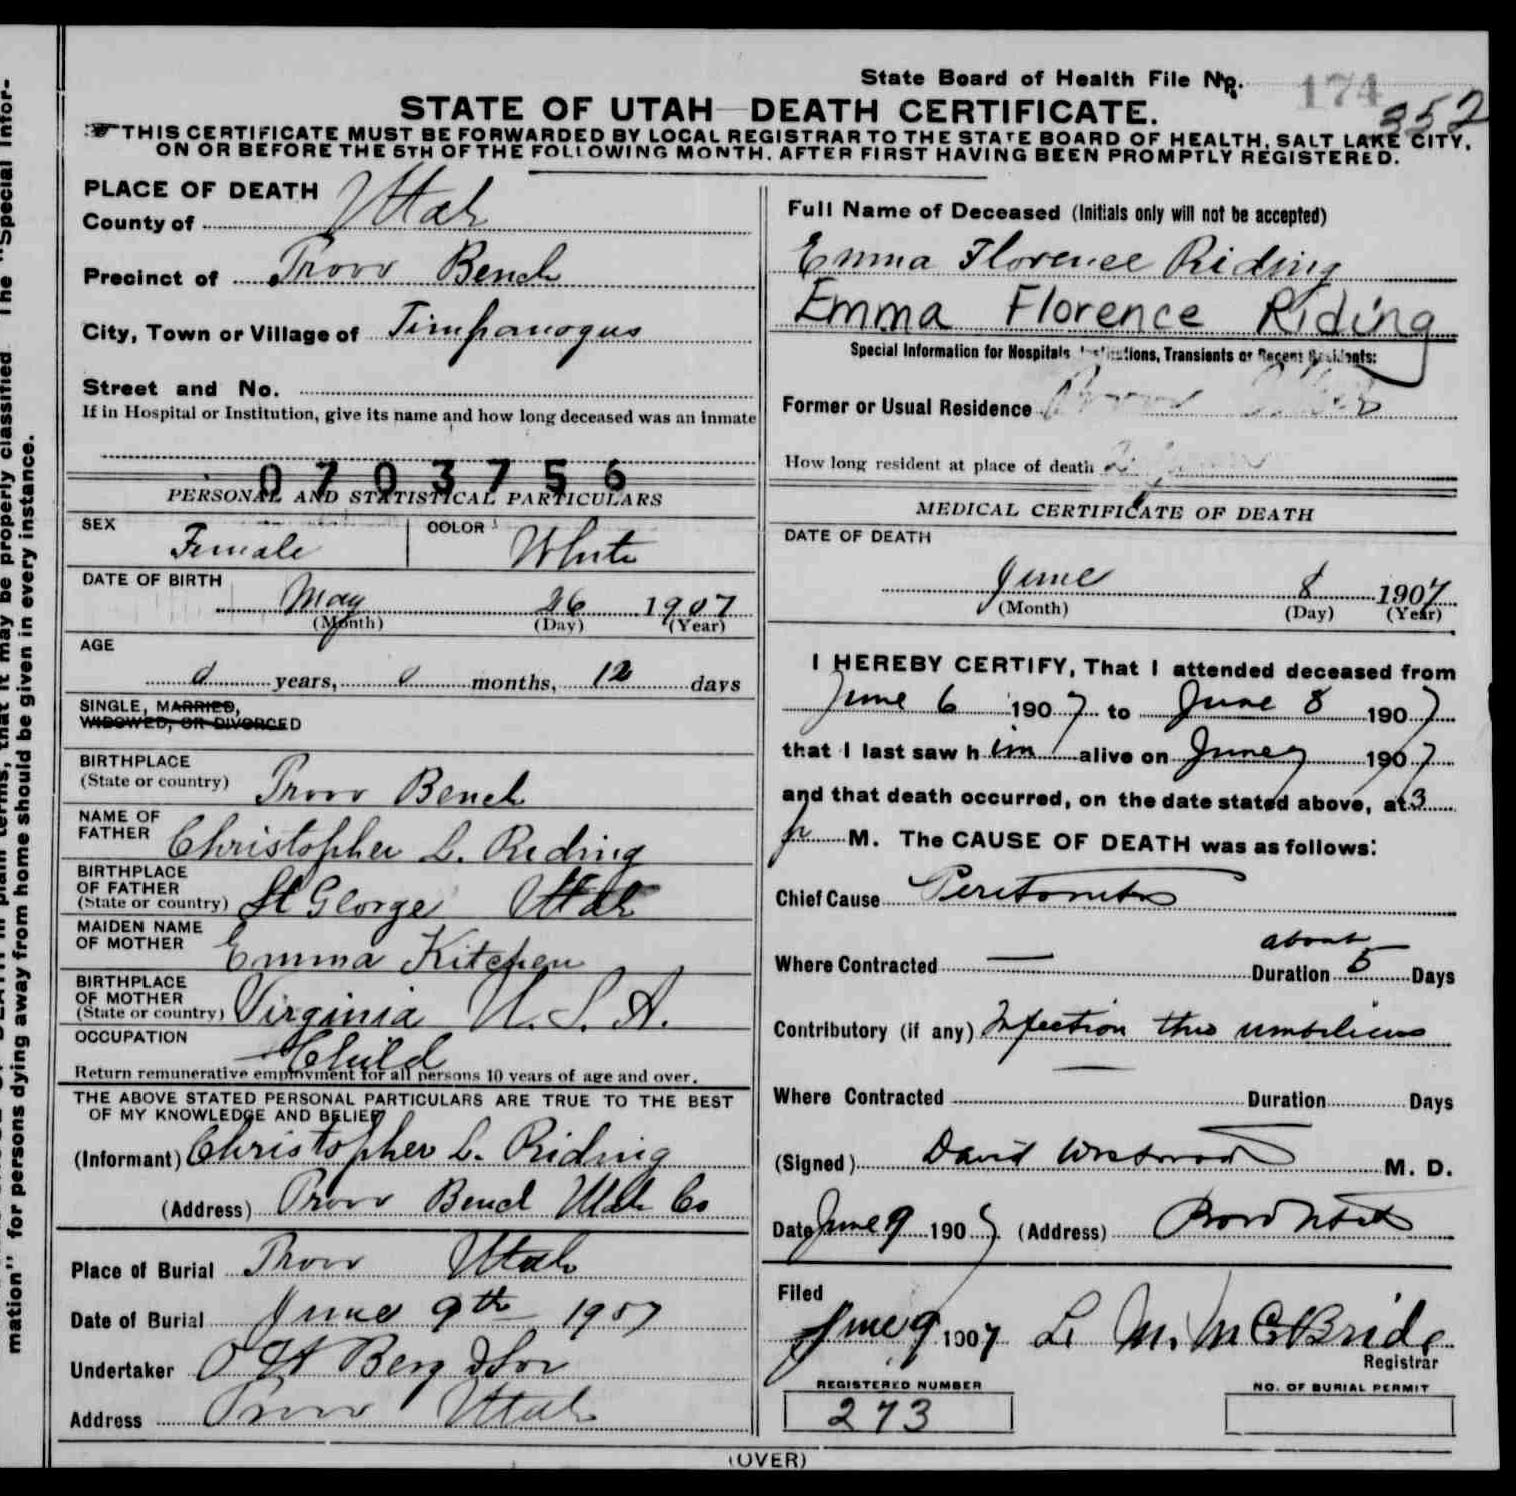 State Board of Health File No. 174
352
STATE OF UTAH—DEATH CERTIFICATE.
THIS CERTIFICATE MUST BE FORWARDED BY LOCAL REGISTRAR TO THE STATE BOARD OF HEALTH, SALT LAKE CITY,
ON OR BEFORE THE 5TH OF THE FOLLOWING MONTH, AFTER FIRST HAVING BEEN PROMPTLY REGISTERED.
PLACE OF DEATH
County of Utah
Precinct of Provo Bench
City, Town or Village of Timpanogus
Street and No.
If in Hospital or Institution, give its name and how long deceased was an inmate
0703756
PERSONAL AND STATISTICAL PARTICULARS
SEX Female COLOR White
DATE OF BIRTH
May 26 1907
(Month) (Day) (Year)
AGE
0 years, 0 months, 12 days
SINGLE, MARRIED,
WIDOWED, OR DIVORCED
BIRTHPLACE
(State or country) Provo Bench
NAME OF
FATHER Christopher L. Riding
BIRTHPLACE
OF FATHER
(State or country) St George Utah
MAIDEN NAME
OF MOTHER Emma Kitchen
BIRTHPLACE
OF MOTHER
(State or country) Virginia U. S. A.
OCCUPATION
Child
Return remunerative employment for all persons 10 years of age and over.
THE ABOVE STATED PERSONAL PARTICULARS ARE TRUE TO THE BEST
OF MY KNOWLEDGE AND BELIEF
(Informant) Christopher L. Riding
(Address) Provo Bench Utah Co
Place of Burial Provo Utah
Date of Burial June 9th 1907
Undertaker O H Berg & Son
Address Provo Utah
Full Name of Deceased (Initials only will not be accepted)
Emma Florence Riding
Emma Florence Riding
Special Information for Hospitals, Institutions, Transients or Recent Residents:
Former or Usual Residence
How long resident at place of death
MEDICAL CERTIFICATE OF DEATH
DATE OF DEATH
June 8 1907
(Month) (Day) (Year)
I HEREBY CERTIFY, That I attended deceased from
June 6 1907 to June 8 1907
that I last saw him alive on June 7 1907
and that death occurred, on the date stated above, at 3
p M. The CAUSE OF DEATH was as follows:
Chief Cause Peritonitis
about
Where Contracted — Duration 5 Days
Contributory (if any) Infection thro umbilicus
Where Contracted — Duration Days
(Signed) David Westwood M. D.
Date June 9 1907 (Address) Provo Utah
Filed
June 9 1907 L. M. McBride
Registrar
REGISTERED NUMBER
273
NO. OF BURIAL PERMIT
(OVER)
mation" for persons dying away from home should be given in every instance.